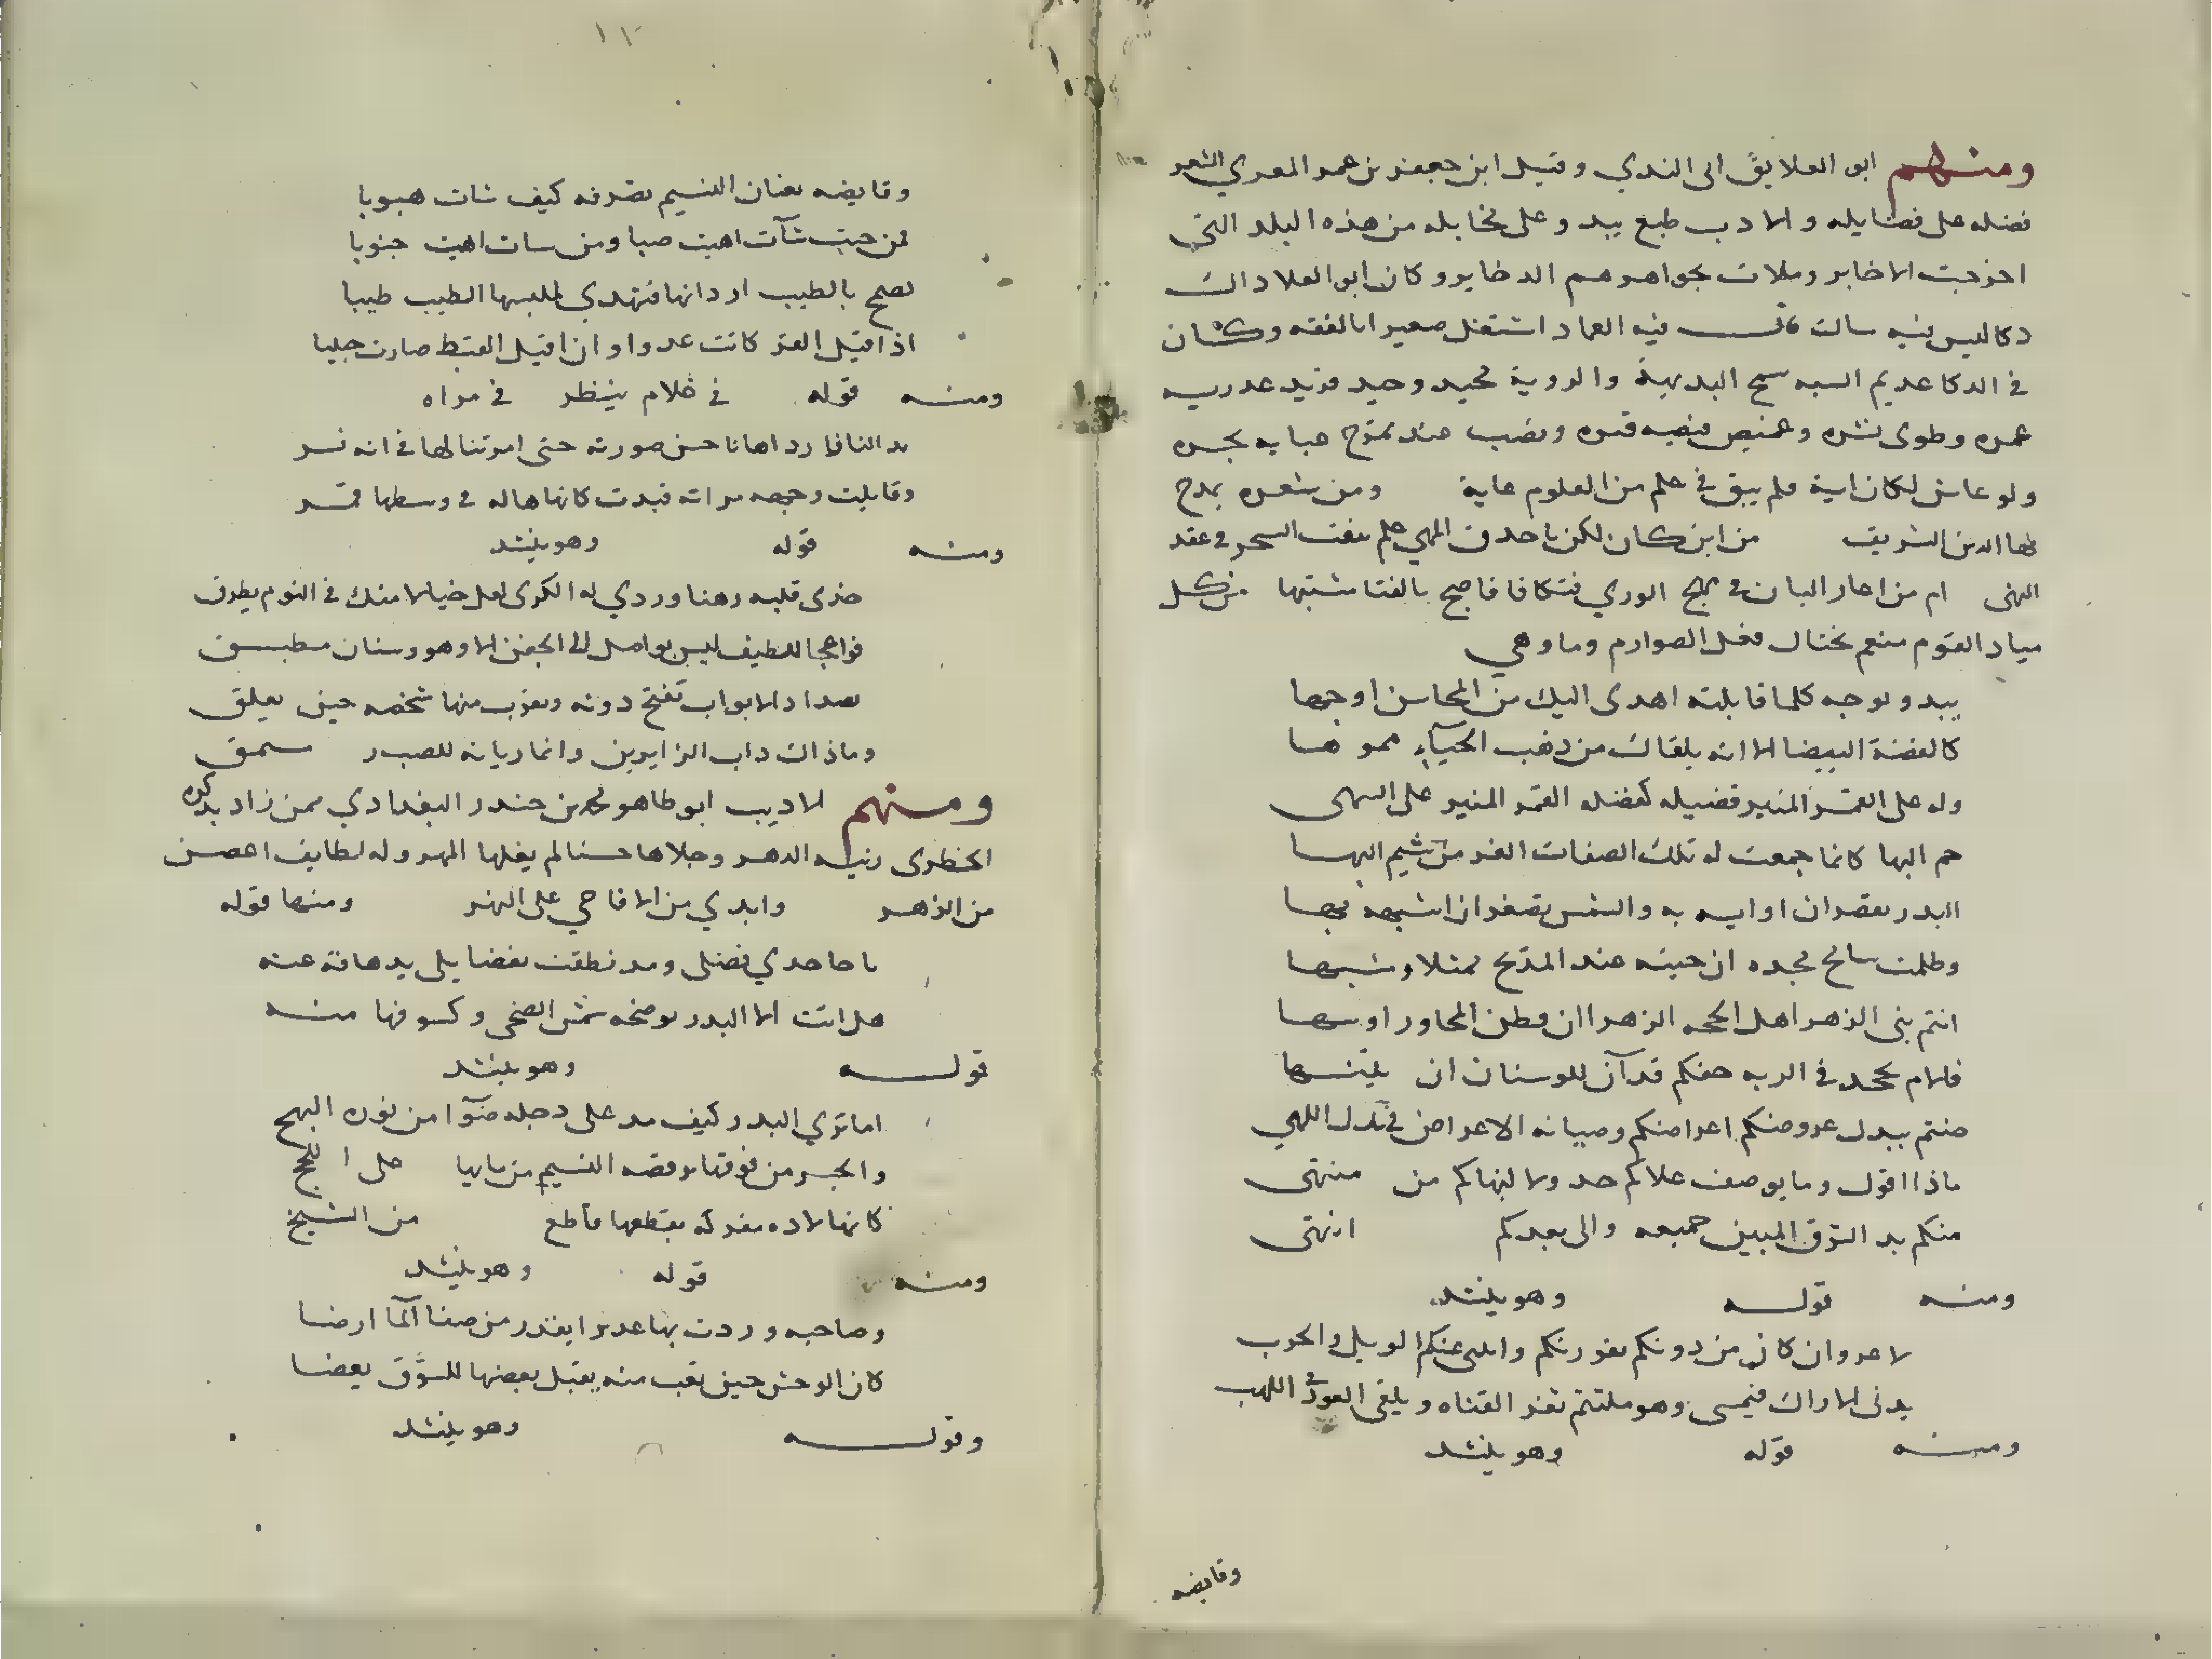 ومنهم ابو العلا بن ابى الندي وقيل ابن جعفر بن عمر المعري الشعر
فضله على فضايله والادب طبع يبدو على مخايله من هذه البلد التى
اخرجت الاخاير وملات بجواهرهم الدخاير وكان ابو العلا داك
دكا ليس فيه سالت قال فيه العماد اشتغل صغيرا بالفقه وكان
فى الدكا عديم السبه سمح البديهة والروية مجيد وحيد فريد غدر به
عمره وطوى نشره وغيض فيضه قبره ونضب عند تموج عبابه بحره
ولو عاش لكان اية فلم يبق فى علم من العلوم غاية ومن شعره يمدح
بها الدين الشريف من اين كان لكن يا حدق المهى علم بنفث السحر فى عقد
النهى ام من اعار البان فى مهج الوري فتكا فاصبح بالفتا مشتبها من كل
مياد القوم منعم يختال فعل الصوارم وما وهي
يبدو بوجه كلما قابلته اهدى اليك من المحاسن اوجها
كالفضة البيضا الا انه يلقاك من ذهب الحيآء مموها
وله على القمر المنير فضيله كفضله القمر المنير على السهى
جم البها كانما جمعت له تلك الصفات الغر من شيم البها
البدر يقصر ان اوايسه به والشمس تصغر ان اشبهه بها
وظلمت سامح مجده ان جيته عند المديح ممثلا ومشبها
انتم بنى الزهرا اهل الحجه الزهرا ان فطن المحاور او سها
فالام يجحد فى البريه حقكم قد آن للوسنان ان يتنبها
صنتم ببدل عروضكم اعراضكم وصيانه الاعراض فى بدل اللهي
ماذا اقول وما يوصف علاكم حد ولا لبهاكم من منتهى
منكم بدا الشرق المبين جميعه والى بعدكم انتهى
ومنه قوله وهو ينشد
لا غرو ان كان من دونكم يفوز بكم واتثنى عنكم الويل والحرب
يدنى الاراك فيمسى وهو ملتثم ثغر الفتاه ويلقى العود فى اللهب
ومنه قوله وهو ينشد
وقايضه
١٢
وقايضه بعنان النسيم تصرفه كيف شات هبوبا
فمن حيث شآت اهبت صبا ومن سات اهبت جنوبا
تضمح بالطيب اردانها فتهدي لملبسها الطيب طيبا
اذا اقبل القر كانت عدوا وان اقبل القيظ صارت حبيبا
ومنه قوله فى غلام ينظر فى مراه
بدا لنا فاردا هانا حسن صورته حتى امرتنا لها فى انه بشر
وقابلت وجهه مراته فبدت كانها هاله فى وسطها قمر
ومنه قوله وهو ينشد
خذى قلبه رهنا وردي له الكرى لعل خيالا منك فى النوم يطرق
فواعجبا للطيف ليس يواصل الى الجفن الا وهو وسنان مطبق
يصد اذ الابواب تفتح دونه ويقرب منها شخصه حين يغلق
وما ذاك داب الزايرين وانما ريانه للصب در سمق
ومنهم الاديب ابو طاهر محمد بن حيدر البغدادي ممن زاد بذكره
الحظوى زينه الدهر وجلاها حسنا لم يغلها المهر وله لطايف اغض
من الزهر وابدي من الاقاحي على النهر ومنها قوله
يا حاسدي فضلى وقد نطقت بفضايلى بدهاته عنه
هل انت الا البدر توضحه شمس الضحى وكسوفها منه
قوله وهو ينشد
اما تري البدر كيف مد على دجله ضوا من نوره البهج
والجسر من فوقها يرقصه النسيم من مايها على اللجج
كانها لاده مفركه يقطعها قاطع من الشيح
ومنه قوله وهو ينشد
وصاحبه وردت بها غديرا يغدر من صفا الما ارضا
كان الوحش حين تعب منه يقبل بعضها للشوق بعضا
وقوله وهو ينشد